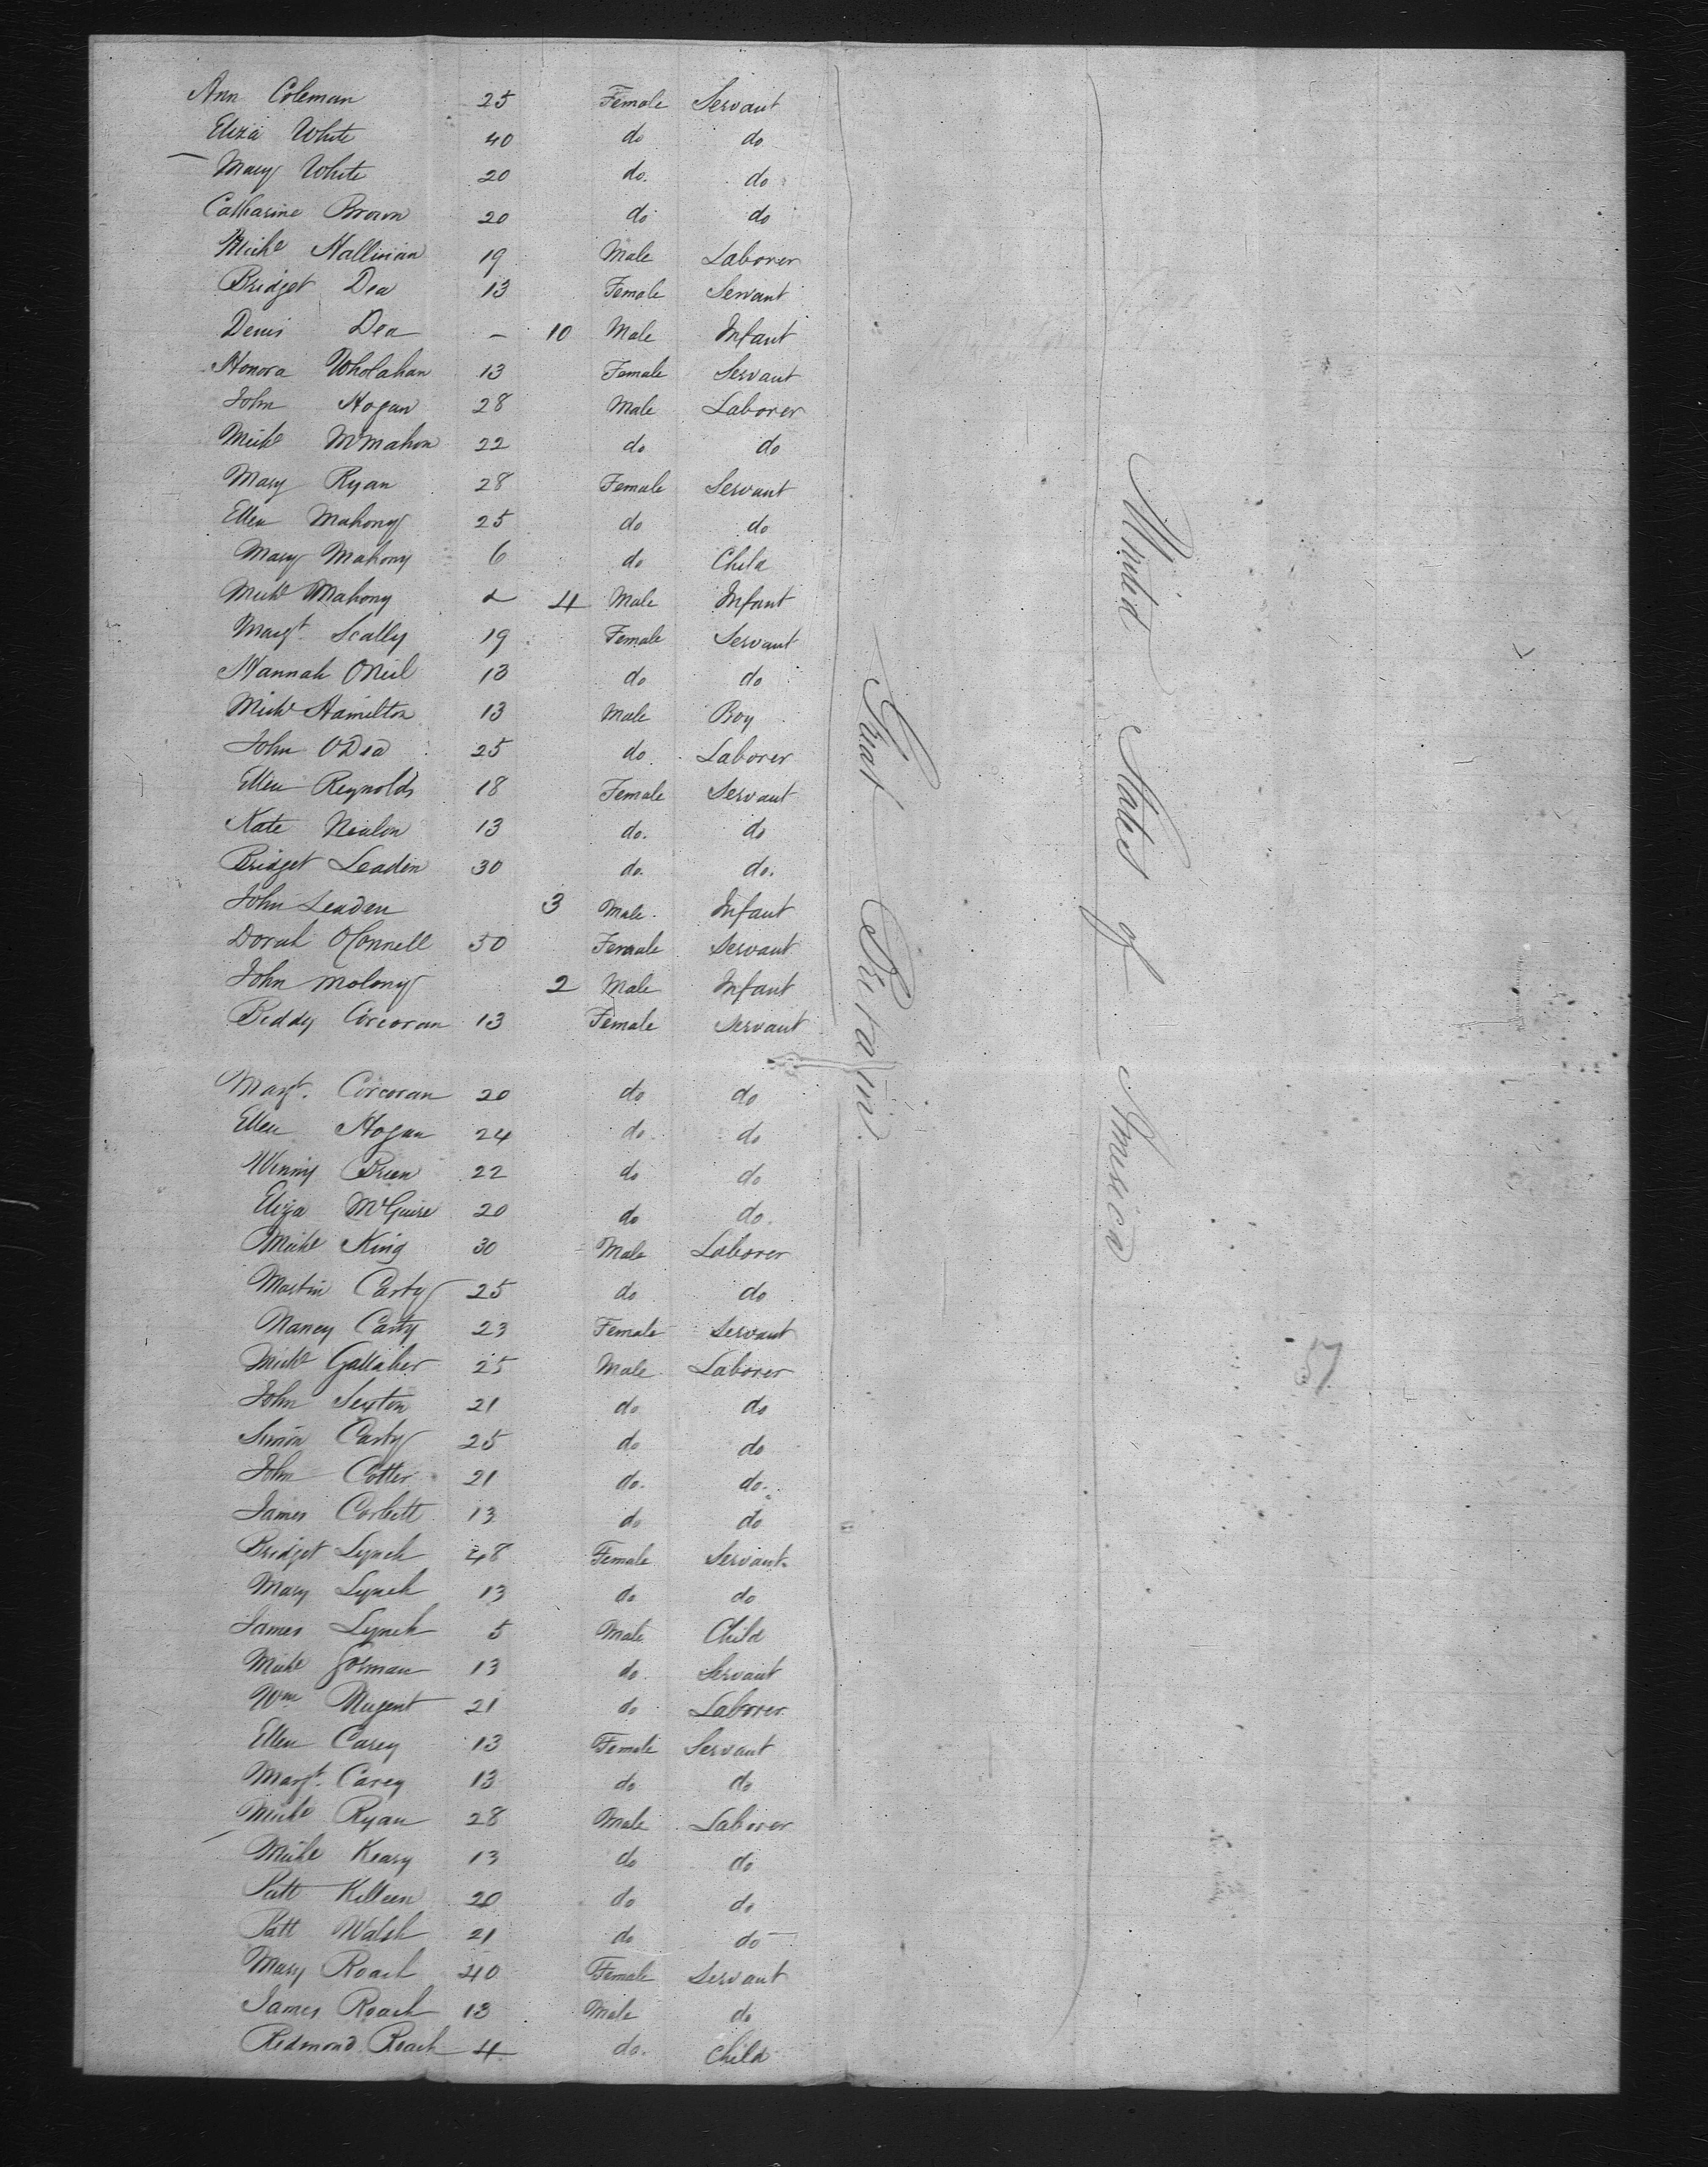 Ann Coleman 25 Female Servant
Eliza White 40 do do
Mary White 20 do. do
Catharine Brown 20 do do
Michl Hallinan 19 Male Laborer
Bridget Dea 13 Female Servant
Denis Dea – 10 Male Infant
Honora Wholahan 13 Female Servant
John Hogan 28 Male Laborer
Michl McMahon 22 do do
Mary Ryan 28 Female Servant
Ellen Mahony 25 do do
Mary Mahony 6 do Child
Michl Mahony 4 Male Infant
Margt. Scally 19 Female Servant
Hannah ONeil 13 do do
Michl Hamilton 13 Male Boy
John ODea 25 do Laborer
Ellen Reynolds 18 Female Servant
Kate Nealon 13 do. do
Bridget Leaden 30 do. do.
John Leaden 3 Male Infant
Dorah OConnell 50 Female Servant
John Molony 2 Male Infant
Biddy Corcoran 13 Female Servant
Margt. Corcoran 20 do do
Ellen Hogan 24 do do
Winny Brien 22 do do
Eliza McGuire 20 do do.
Michl King 30 Male Laborer
Martin Carty 25 do do
Nancy Carty 23 Female Servant
Michl Gallaher 25 Male Laborer
John Sexton 21 do do
Simon Carty 25 do do
John Cotter 21 do. do.
James Corbett 13 do do
Bridget Lynch 48 Female Servant
Mary Lynch 13 do do
James Lynch 5 Male Child
Michl Gorman 13 do. Servant
Wm Nugent 21 do Laborer
Ellen Carey 13 Female Servant
Margt. Carey 13 do do
Michl Ryan 28 Male Laborer
Michl Keary 13 do do
Patt Killeen 20 do do
Patt Walsh 21 do do
Mary Roach 40 Female Servant
James Roach 13 Male do
Redmond Roach 4 do. Child
Great Britain
United States of America
57